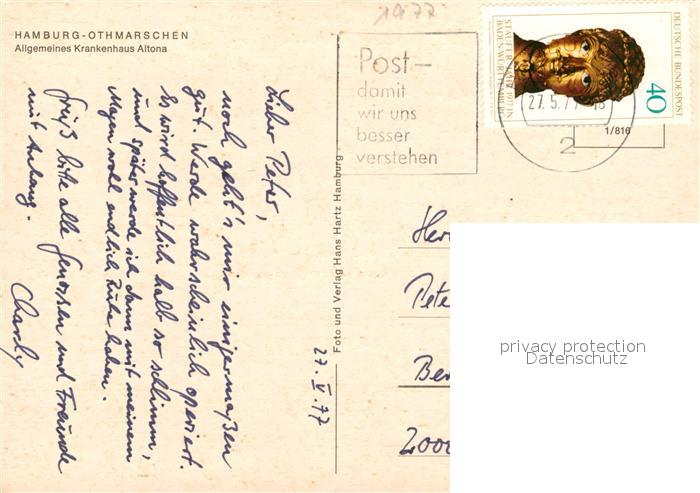 HAMBURG-OTHMARSCHEN
Allgemeines Krankenhaus Altona
1977
Post-
damit
wir uns
besser
verstehen
27.5.77-18
2
STAUFERJAHR 1977 IN
BADEN-WÜRTTEMBERG
DEUTSCHE BUNDESPOST
40
1/816
27.V.77
Lieber Peter,
noch geht's mir einigermaßen
gut. Werde wahrscheinlich operiert.
Es wird hoffentlich halb so schlimm,
und später werde ich dann mit meinem
Magen wohl endlich Ruhe haben.
Grüß bitte alle Genossen und Freunde
mit Anhang.
Charly
Foto und Verlag Hans Hartz Hamburg
Her
Pete
Ber
2000
privacy protection
Datenschutz